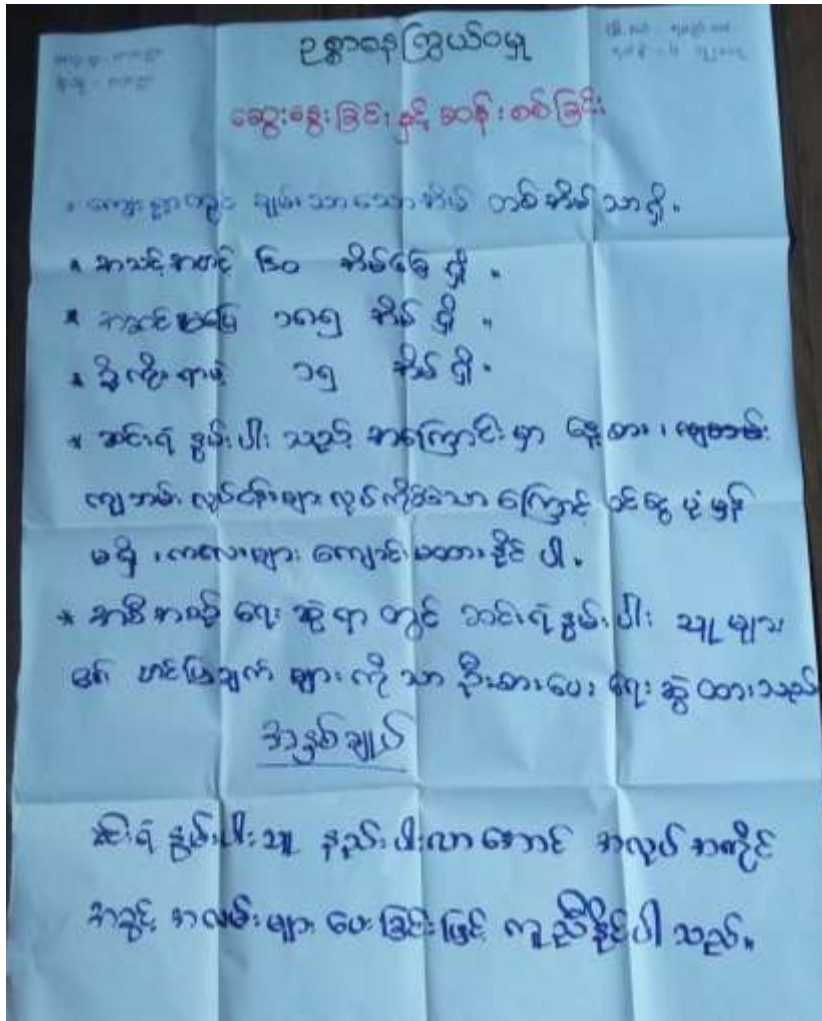 ဥစ္စာဓနကြွယ်ဝမှု
ဆွေးနွေးခြင်းနှင့် ဆန်းစစ်ခြင်း
* ကျေးရွာတွင် ချမ်းသာသောအိမ် တစ်အိမ်သာရှိ။
* အသင့်အတင့် ၆၀ အိမ်ခြေရှိ။
* ၁၈၅ အိမ်ရှိ။
* ခိုကိုးရာမဲ့ ၁၅ အိမ်ရှိ။
* ဆင်းရဲနွမ်းပါးသည့် အကြောင်းမှာ နေ့စား၊
ကျဘမ်းလုပ်ငန်းများ လုပ်ကိုင်သောကြောင့် ဝင်ငွေ ပုံမှန်
မရှိ၊ ကလေးများ ကျောင်းမထားနိုင်ပါ။
* အစီအစဉ်ရေးဆွဲရာတွင် ဆင်းရဲနွမ်းပါး သူများ
၏ တင်ပြချက်များကိုသာ ဦးစားပေးရေးဆွဲထားသည်
အနှစ်ချုပ်
ဆင်းရဲနွမ်းပါးသူ နည်းပါးလာအောင် အလုပ်အကိုင်
အခွင့်အလမ်းများ ပေးခြင်းဖြင့် ကူညီနိုင်ပါသည်။